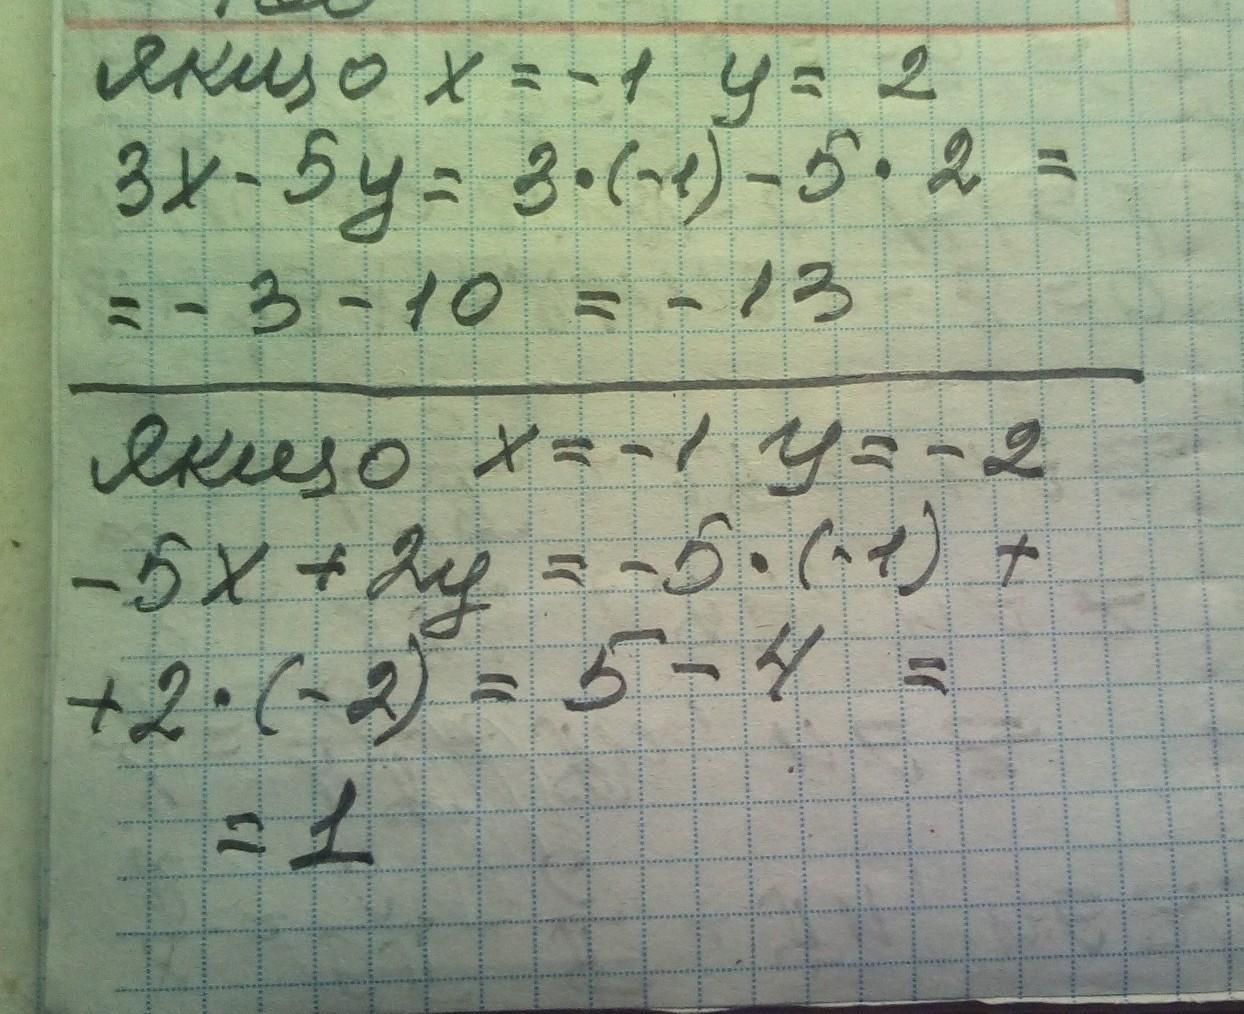 Якщо x = -1 y = 2
3x - 5y = 3·(-1) - 5·2 =
= - 3 - 10 = - 13
Якщо x = -1 y = - 2
-5x + 2y = -5·(-1) +
+2·(-2) = 5 - 4 =
= 1